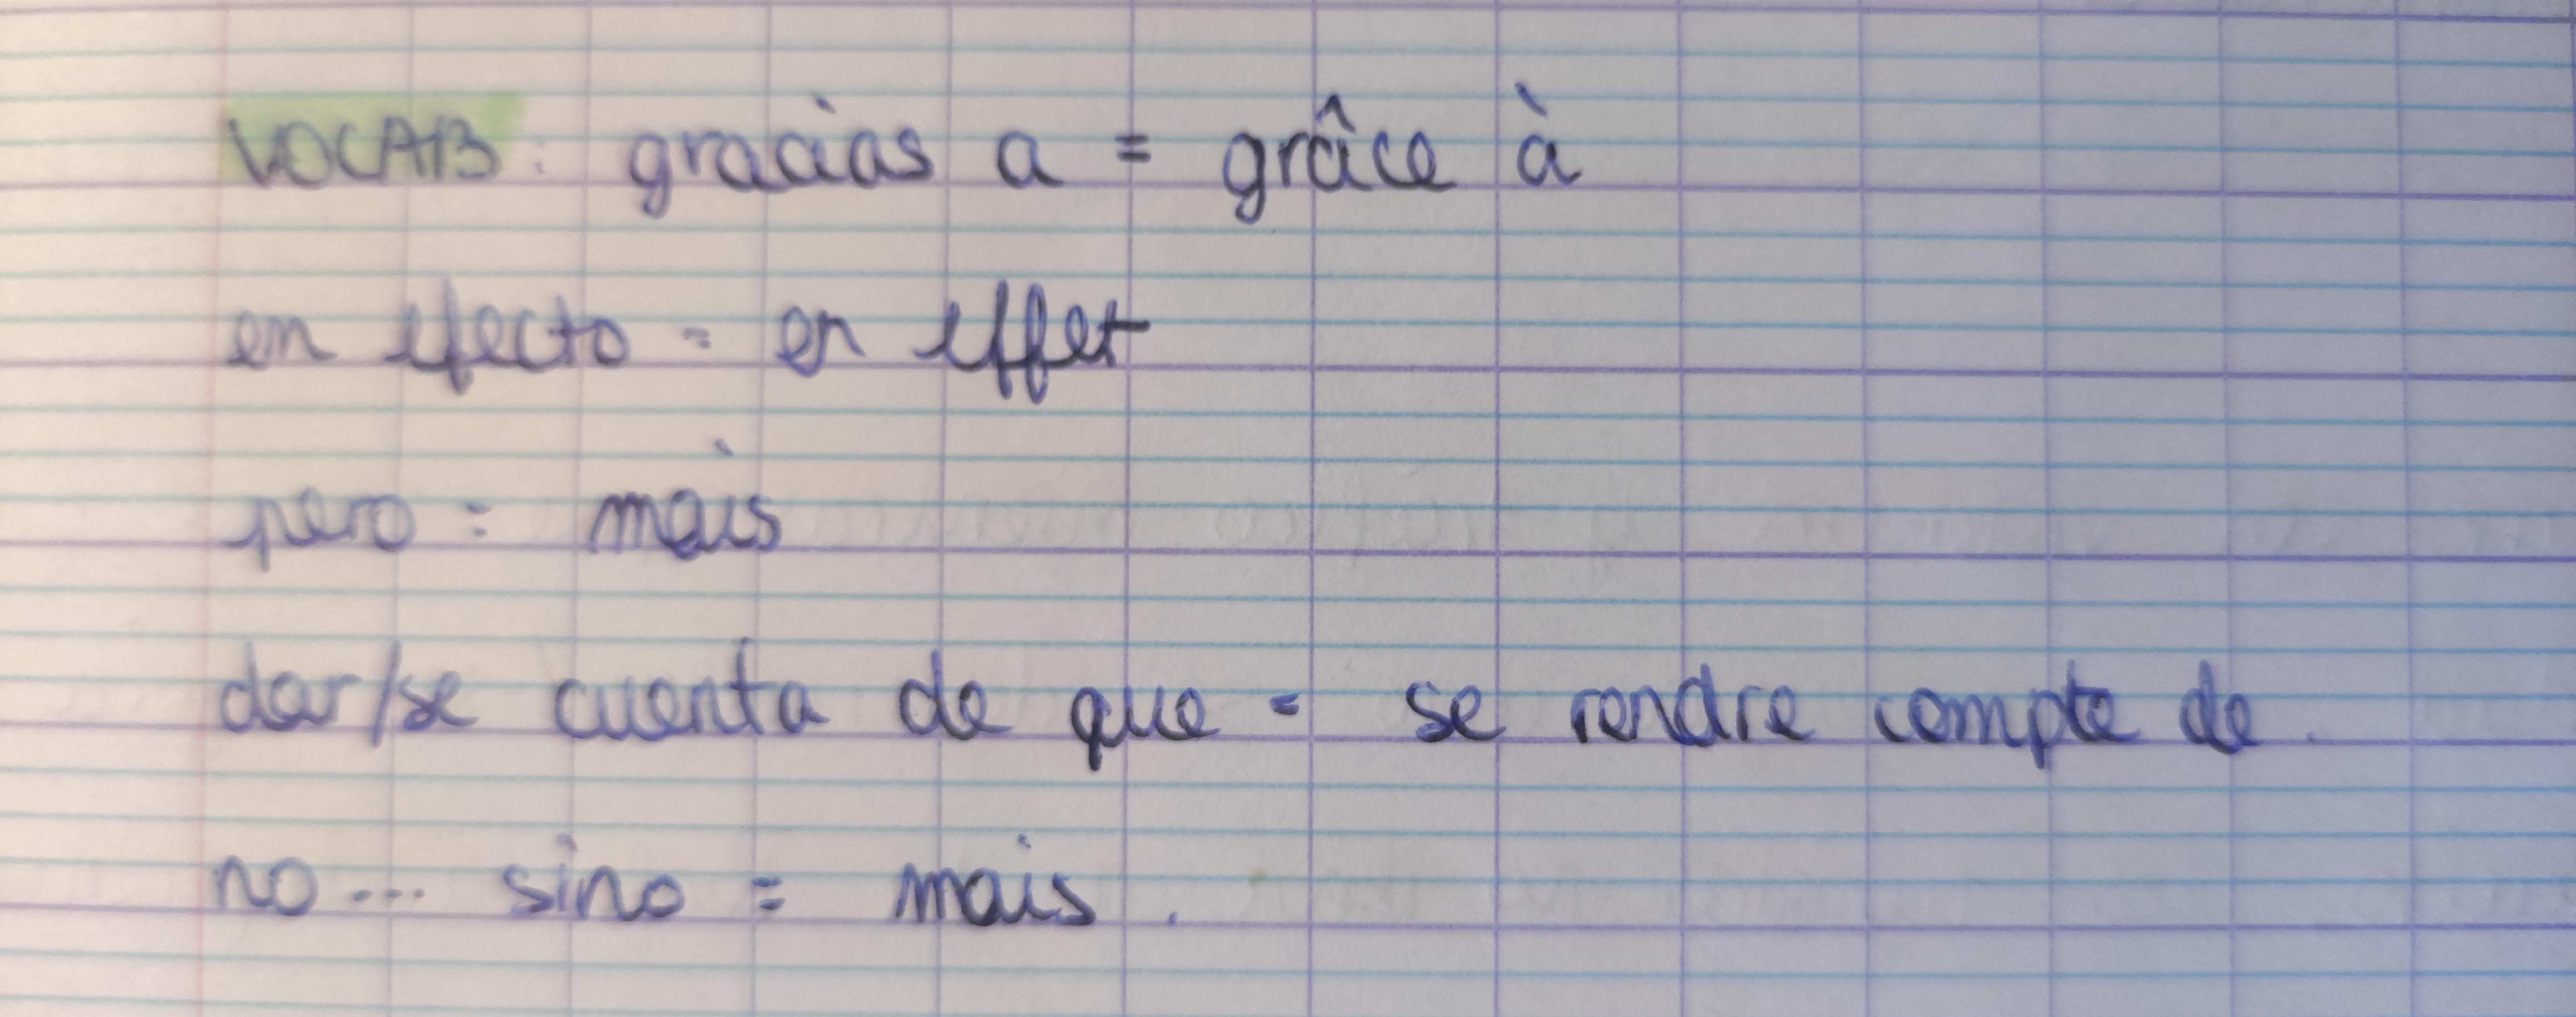 VOCAB : gracias a = grâce à
en efecto = en effet
pero = mais
dar/se cuenta de que = se rendre compte de.
no... sino = mais.